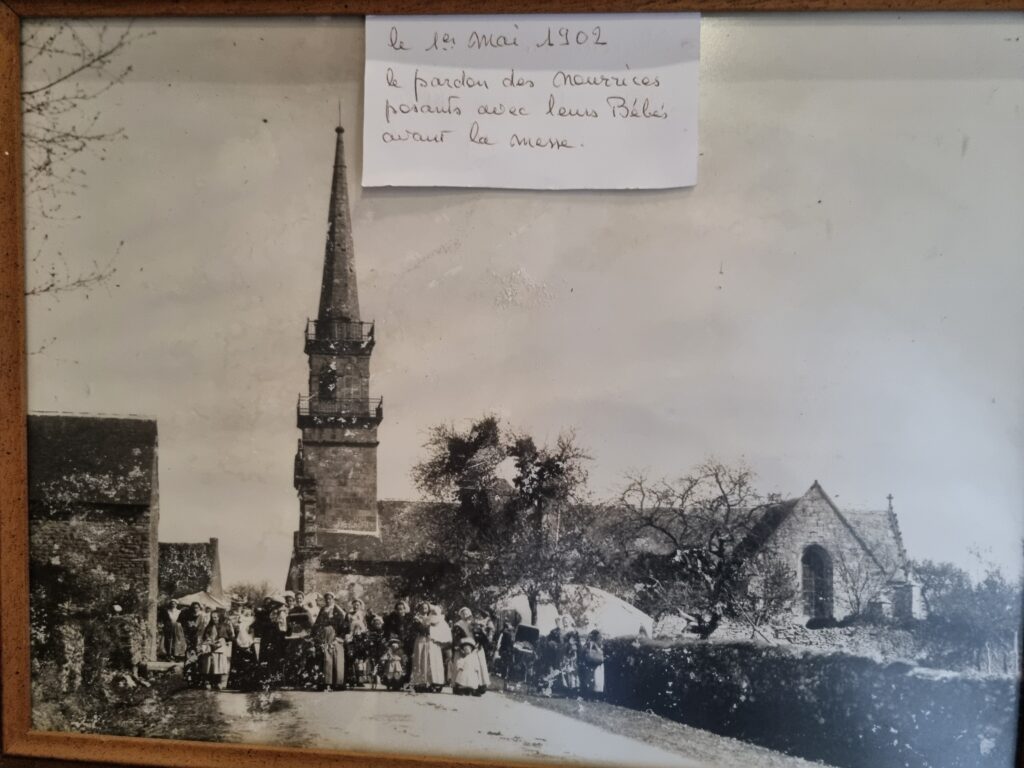 le 1er Mai 1902
le pardon des Nourrices
posants avec leurs Bébés
avant la messe.